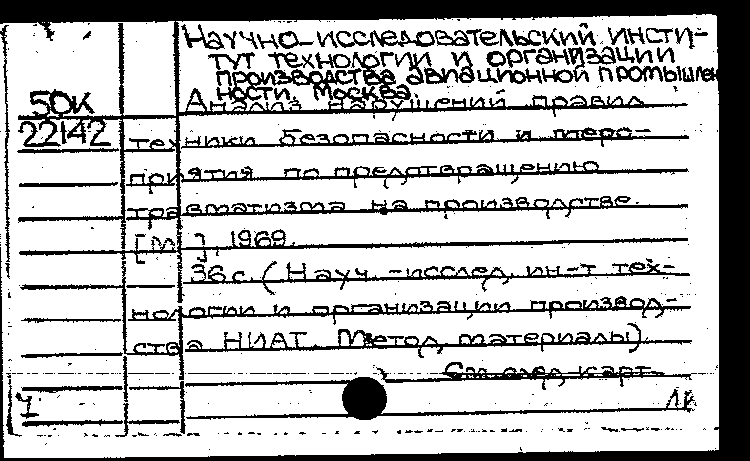 Научно-исследовательский инсти-
тут технологии и организации
производства авиационной промышлен
ности. Москва.
50К Анализ нарушений правил
22142 техники безопасности и меро-
приятия по предотвращению
травматизма на производстве.
[М.], 1969.
36 с. (Науч.-исслед. ин-т тех-
нологии и организации производ-
ства НИАТ. Метод. материалы)
См. след. карт.